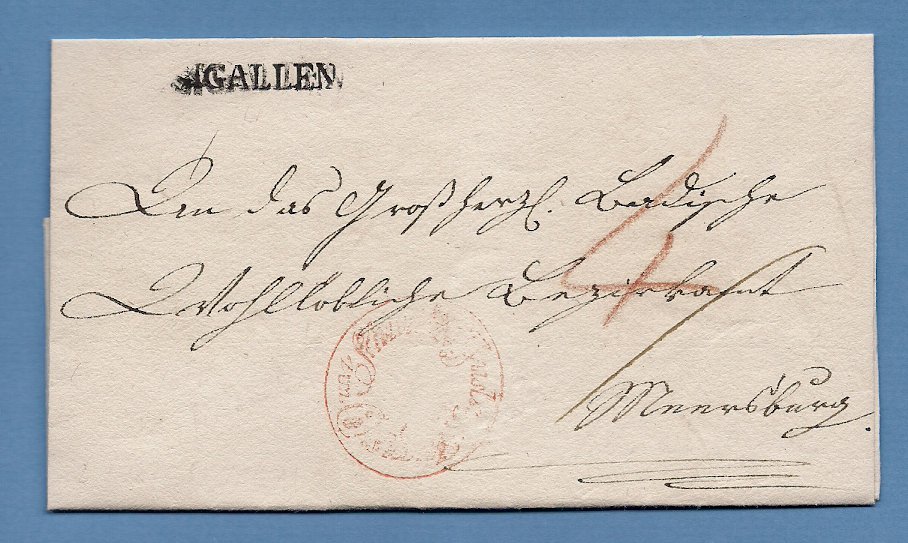 St GALLEN
An das Großherzl. Badische
Wohllöbliche Bezirksamt
4
Meersburg.